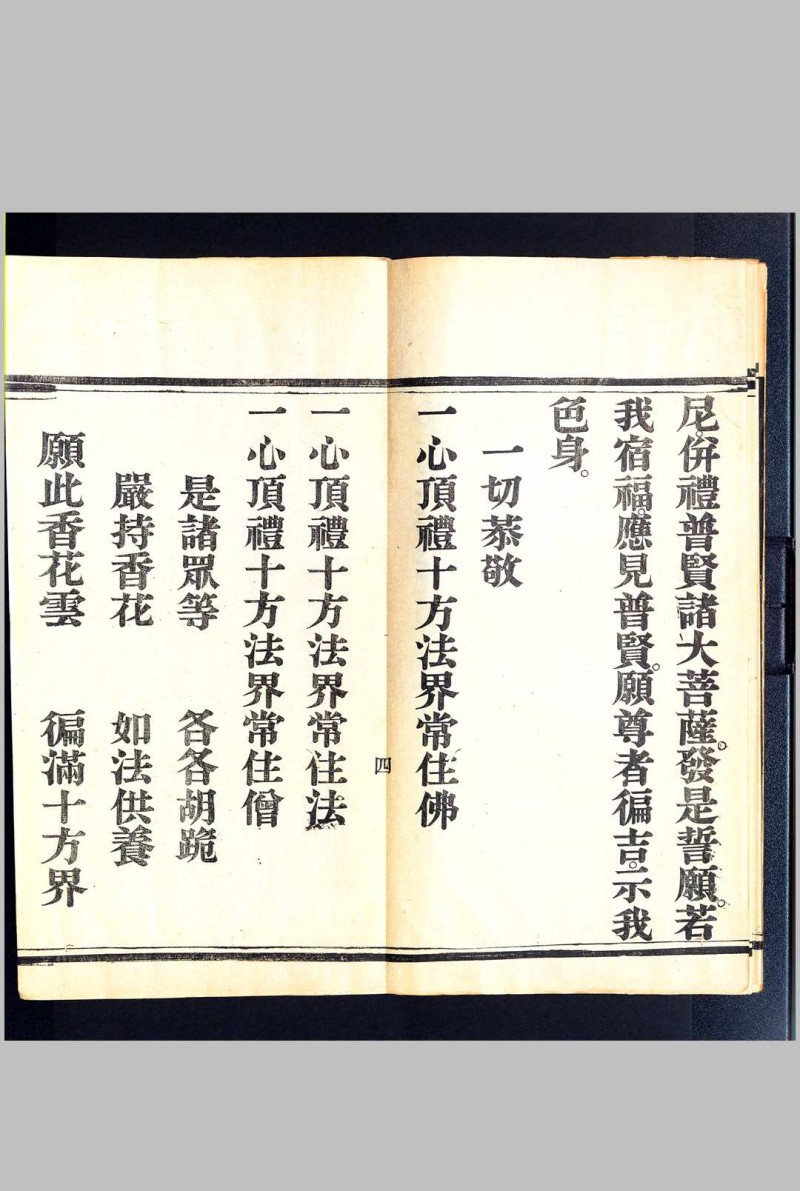 尼。併禮普賢諸大菩薩。發是誓願。若
我宿福。應見普賢。願尊者徧吉。示我
色身。
一切恭敬
一心頂禮十方法界常住佛
四
一心頂禮十方法界常住法
一心頂禮十方法界常住僧
是諸眾等　各各胡跪
嚴持香花　如法供養
願此香花雲　徧滿十方界